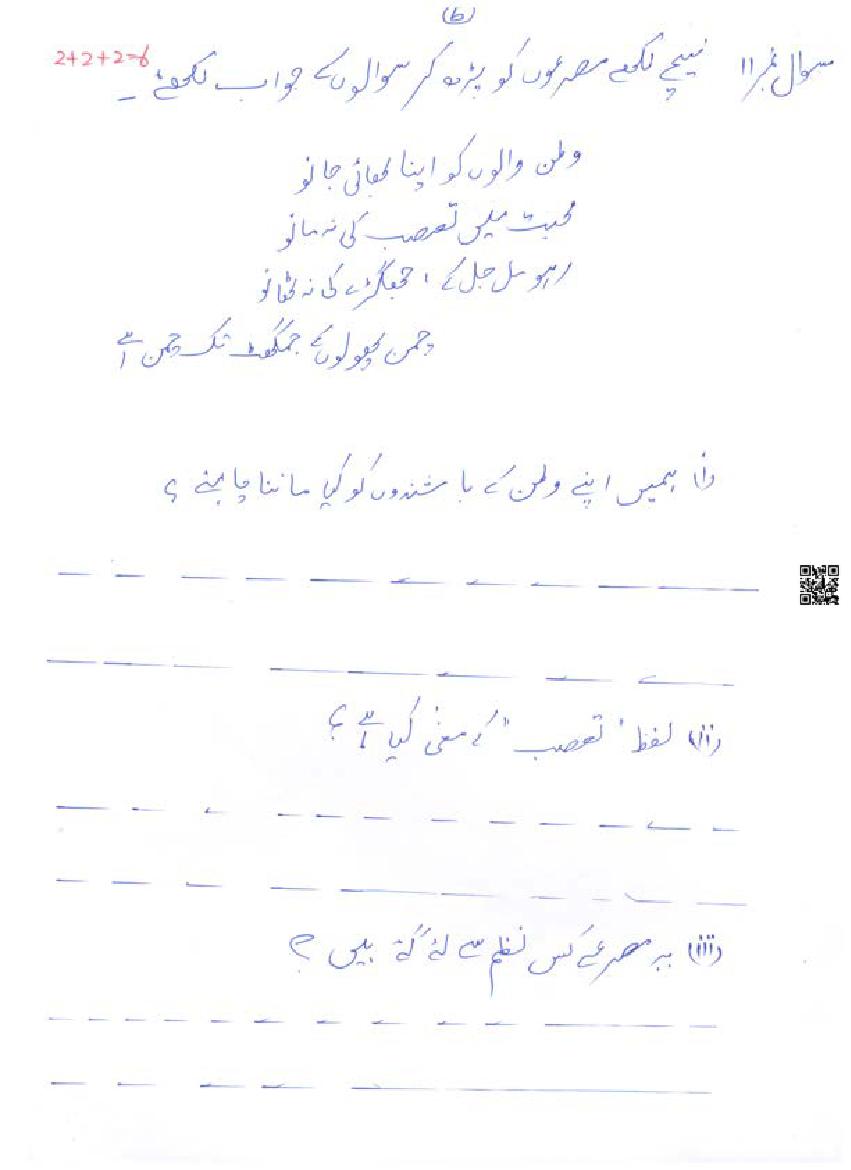 (ط)
سوال نمبر ۱۱ نیچے لکھے مصرعوں کو پڑھ کر سوالوں کے جواب لکھئے۔ 2+2+2=6
وطن والوں کو اپنا بھائی جانو
محبت میں تعصب کی نہ مانو
رہو مل جل کے ، جھگڑے کی نہ ٹھانو
چمن پھولوں کے جمگھٹ تک چمن ہے
(i) ہمیں اپنے وطن کے باشندوں کو کیا ماننا چاہئے ؟
(ii) لفظ "تعصب" کے معنی کیا ہے ؟
(iii) یہ مصرعے کس نظم سے لئے گئے ہیں ؟